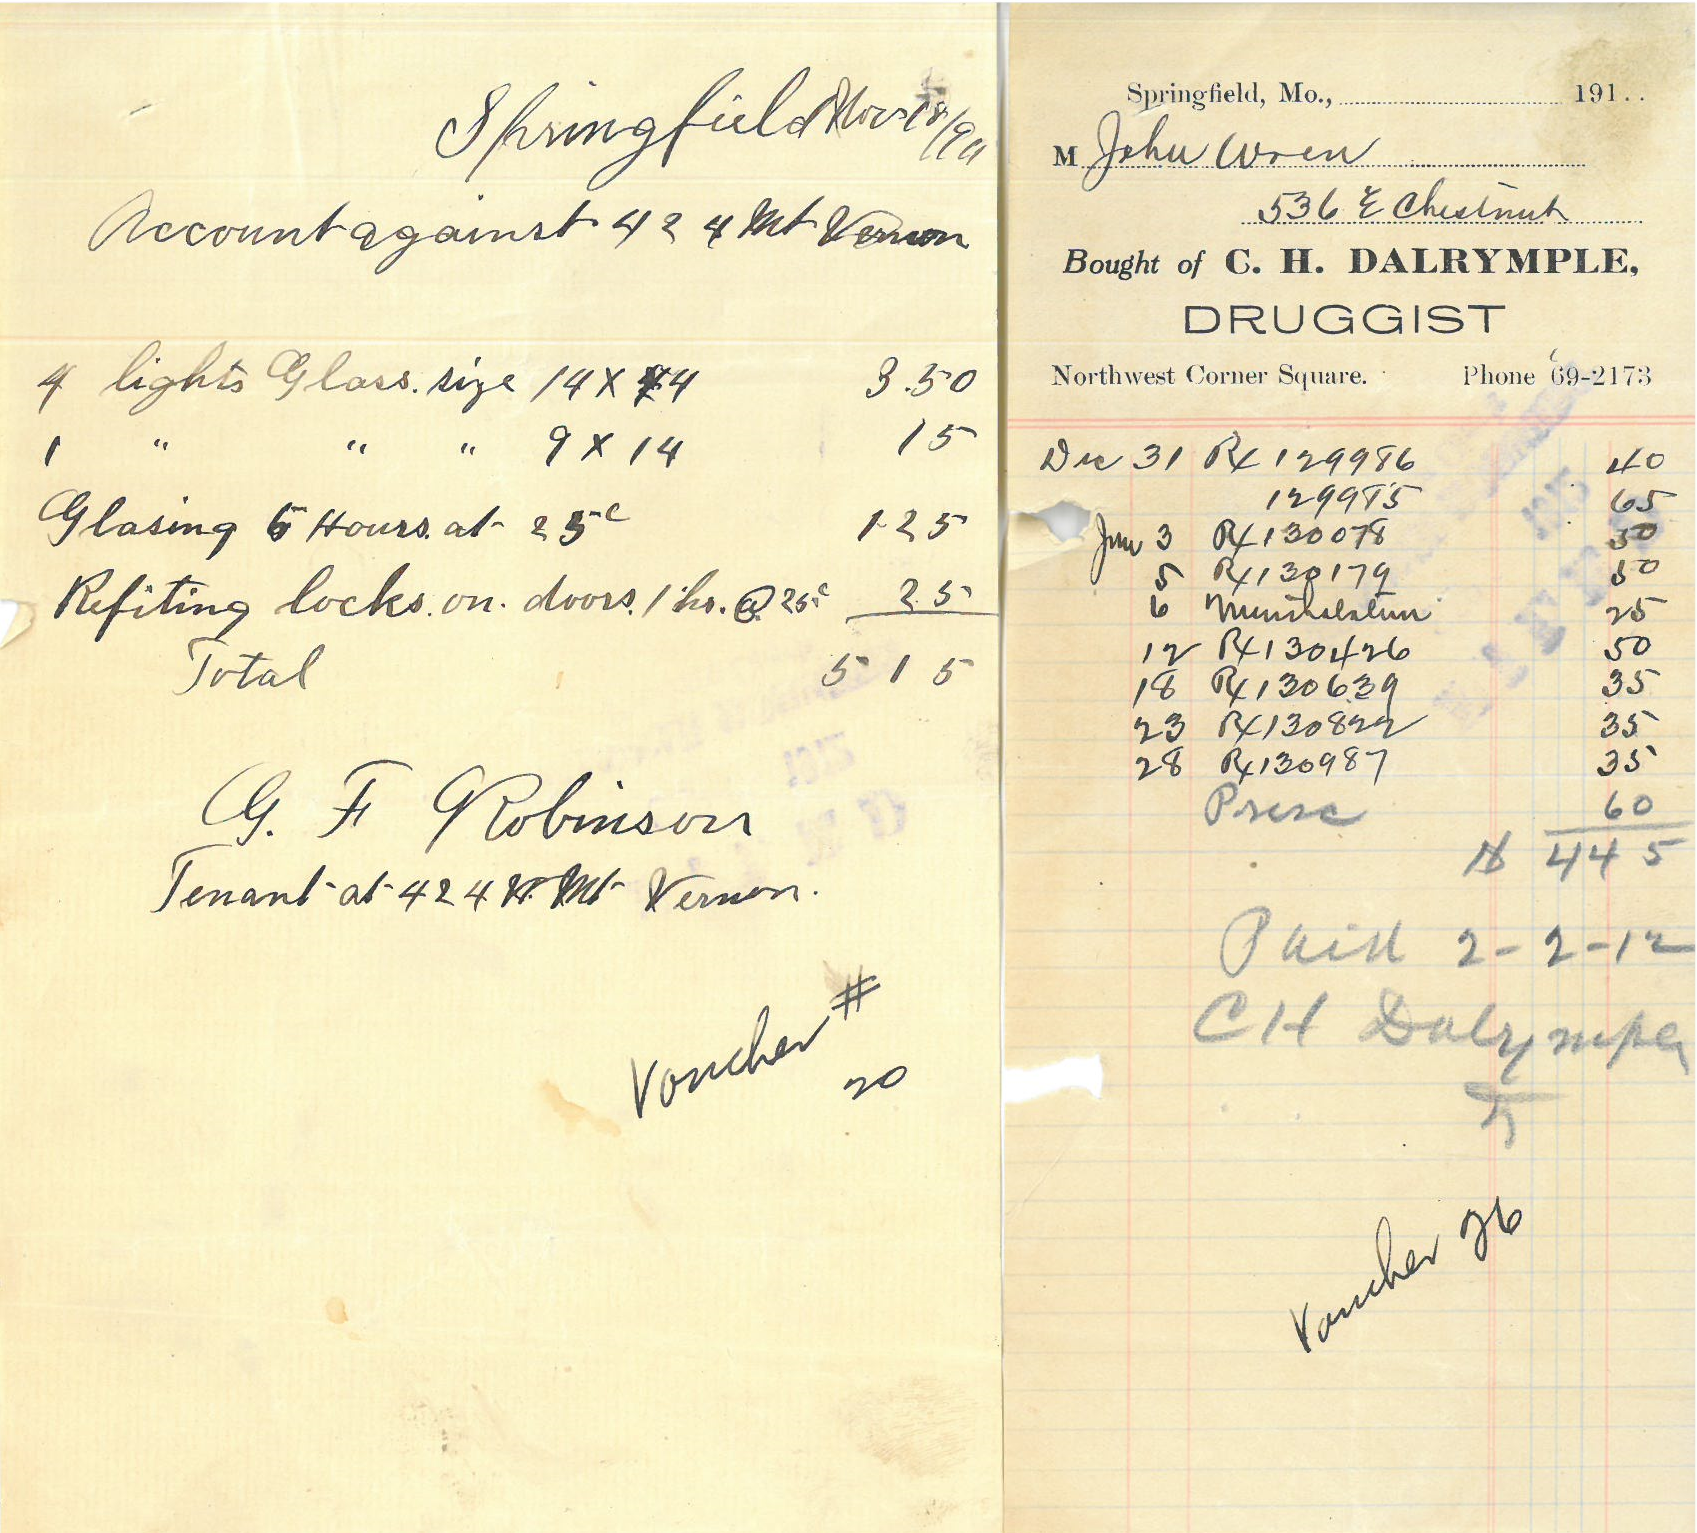 Springfield Nov 18/1911
Account against 424 Mt Vernon
4 lights Glass. size 14 X 44 3.50
1 " " " 9 X 14 15
Glasing 5 Hours. at 25c 1 25
Refiting locks. on. doors. 1 hr. @ 25c 25
Total 5 15
G. F Robinson
Tenant at 424 W. Mt Vernon.
Voucher #
20
Springfield, Mo., 191..
M John Wren
536 E Chestnut
Bought of C. H. DALRYMPLE,
DRUGGIST
Northwest Corner Square. Phone 69-2173
Dec 31 Rx 129986 40
129985 65
Jan 3 Rx 130078 50
5 Rx 130179 50
6 Mentholatum 25
12 Rx 130426 50
18 Rx 130639 35
23 Rx 130822 35
28 Rx 130987 35
Presc 60
$ 4 45
Paid 2-2-12
C H Dalrymple
Voucher 26